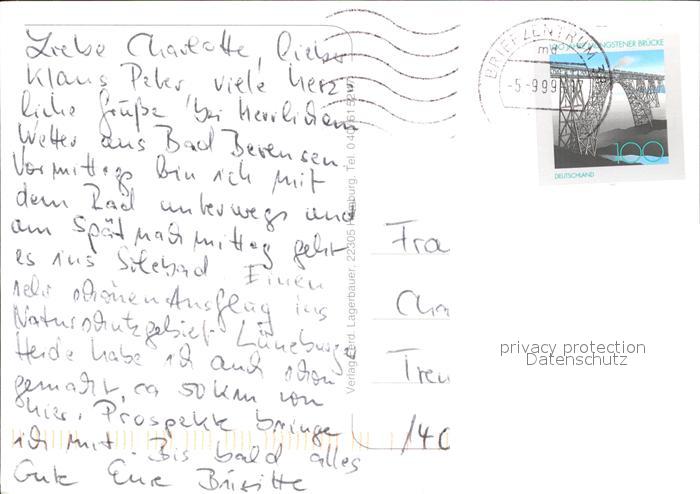 Liebe Charlotte, lieber
Klaus Peter, viele herz
liche Grüße bei herrlichem
Wetter aus Bad Bevensen
Vormittags bin ich mit
dem Rad unterwegs und
am Spätnachmittag geht
es ins Solebad. Einen
sehr schönen Ausflug ins
Naturschutzgebiet Lüneburger
Heide habe ich auch schon
gemacht, ca 50 km von
hier. Prospekte bringe
ich mit. Bis bald alles
Gute Eure Brigitte
Verlag Gerd. Lagerbauer, 22305 Hamburg, Tel. 040
BRIEFZENTRUM
md
-5.-9.99
100 JAHRE MÜNGSTENER BRÜCKE
100
DEUTSCHLAND
Fra
Cha
Tren
/40
privacy protection
Datenschutz